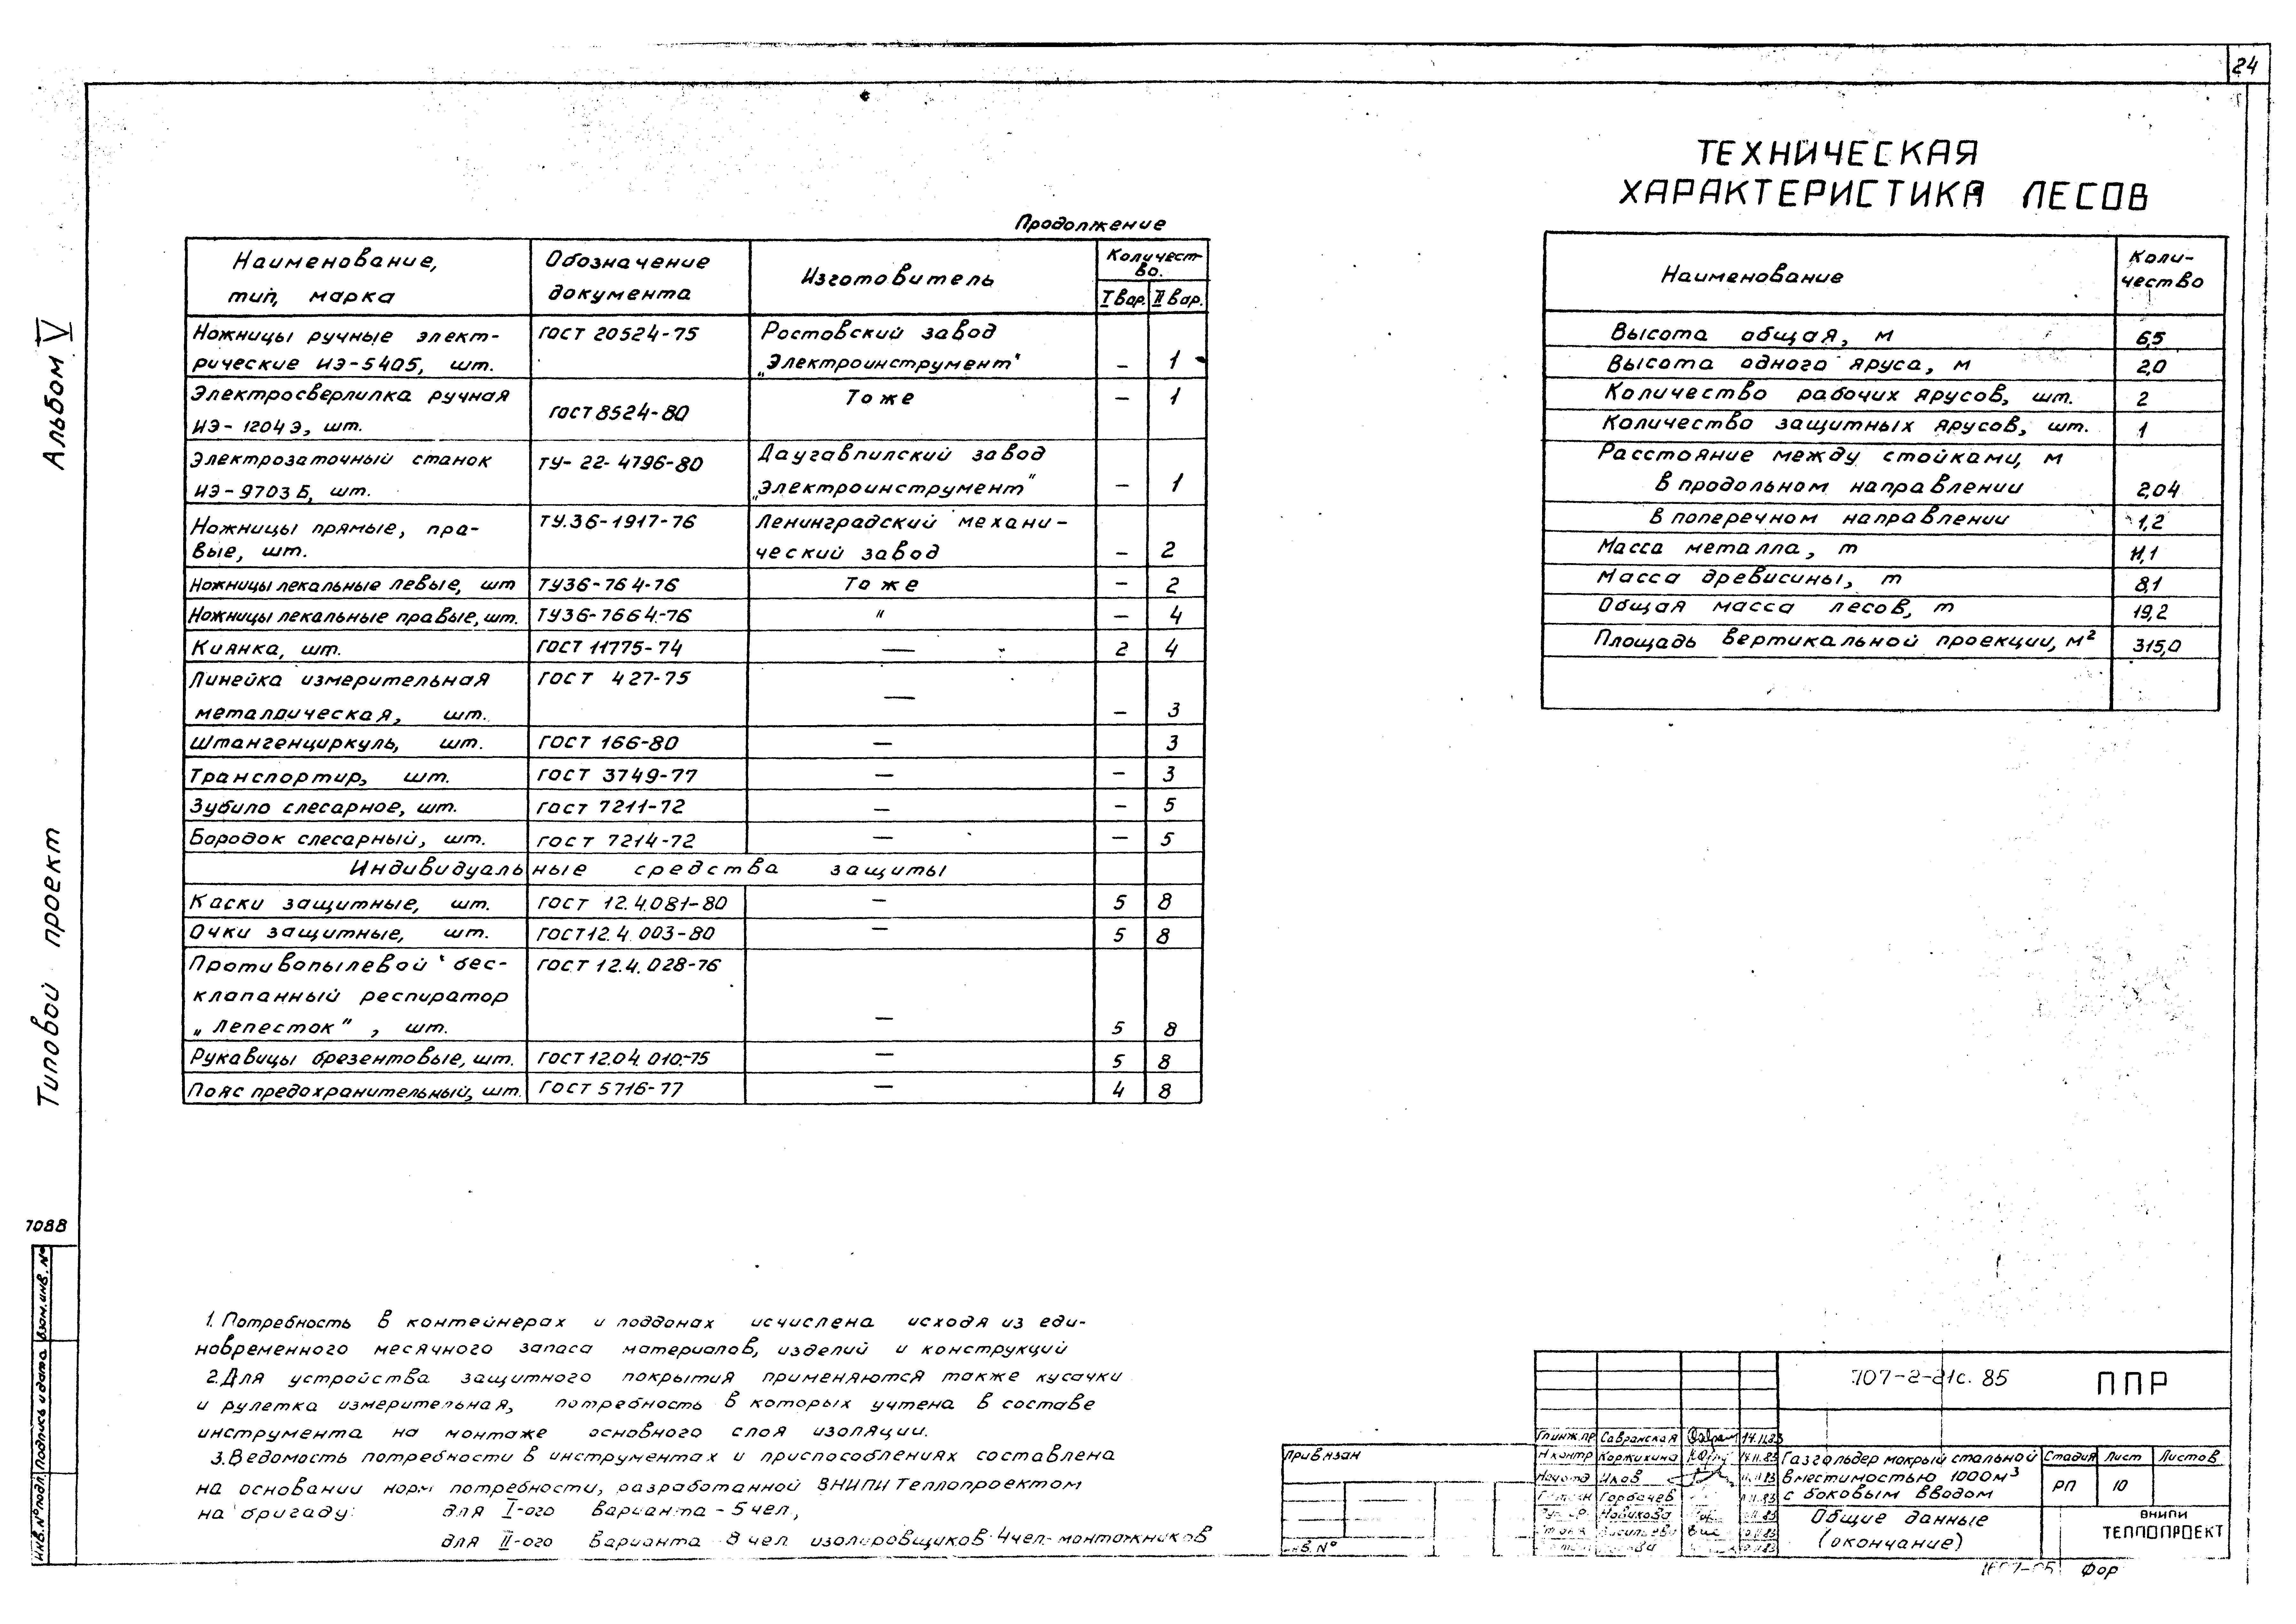 24
Альбом V
Типовой проект
7088
Инв.№подл. Подпись и дата Взам.инв.№
Продолжение
Наименование, тип, марка
Обозначение документа
Изготовитель
Количест-во.
I вар. II вар.
Ножницы ручные элект- ГОСТ 20524-75 Ростовский завод
рические ИЭ-5405, шт. „Электроинструмент" – 1
Электросверлилка ручная ГОСТ 8524-80 То же – 1
ИЭ-1204Э, шт.
Электрозаточный станок ТУ-22-4796-80 Даугавпилский завод
ИЭ-9703Б, шт. „Электроинструмент" – 1
Ножницы прямые, пра- ТУ.36-1917-76 Ленинградский механи-
вые, шт. ческий завод – 2
Ножницы лекальные левые, шт ТУ36-764-76 То же – 2
Ножницы лекальные правые, шт. ТУ36-7664-76 " – 4
Киянка, шт. ГОСТ 11775-74 — 2 4
Линейка измерительная ГОСТ 427-75 —
металлическая, шт. – 3
Штангенциркуль, шт. ГОСТ 166-80 — 3
Транспортир, шт. ГОСТ 3749-77 — – 3
Зубило слесарное, шт. ГОСТ 7211-72 — – 5
Бородок слесарный, шт. ГОСТ 7214-72 — – 5
Индивидуальные средства защиты
Каски защитные, шт. ГОСТ 12.4.081-80 — 5 8
Очки защитные, шт. ГОСТ 12.4.003-80 — 5 8
Противопылевой бес- ГОСТ 12.4.028-76
клапанный респиратор
„Лепесток", шт. — 5 8
Рукавицы брезентовые, шт. ГОСТ 12.04.010.-75 — 5 8
Пояс предохранительный, шт. ГОСТ 5716-77 — 4 8
ТЕХНИЧЕСКАЯ
ХАРАКТЕРИСТИКА ЛЕСОВ
Наименование
Коли-чество
Высота общая, м 6,5
Высота одного яруса, м 2,0
Количество рабочих ярусов, шт. 2
Количество защитных ярусов, шт. 1
Расстояние между стойками, м
в продольном направлении 2,04
в поперечном направлении 1,2
Масса металла, т 11,1
Масса древисины, т 8,1
Общая масса лесов, т 19,2
Площадь вертикальной проекции, м² 315,0
1. Потребность в контейнерах и поддонах исчислена исходя из еди-
новременного месячного запаса материалов, изделий и конструкций
2. Для устройства защитного покрытия применяются также кусачки
и рулетка измерительная, потребность в которых учтена в составе
инструмента на монтаже основного слоя изоляции.
3. Ведомость потребности в инструментах и приспособлениях составлена
на основании норм потребности, разработанной ВНИПИ Теплопроектом
на бригаду: для I-ого варианта - 5 чел,
для II-ого варианта 8 чел изолировщиков 4 чел-монтажников
Привязан
инв.№
707-2-21с.85 ППР
Гл.инж.пр Савранская 14.11.83
Н.контр Коржихина 14.11.83
Нач.отд
Горбачев
Новикова
Газгольдер мокрый стальной
вместимостью 1000м³
с боковым вводом
Стадия Лист Листов
РП 10
Общие данные
(окончание)
ВНИПИ
ТЕПЛОПРОЕКТ
Фор